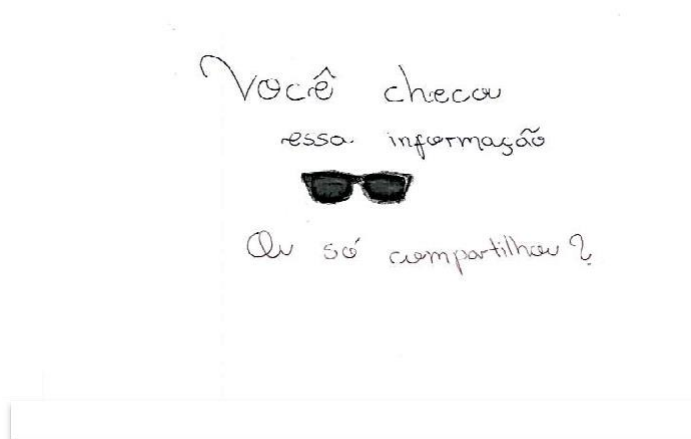 Você checou
essa informação
Ou só compartilhou?